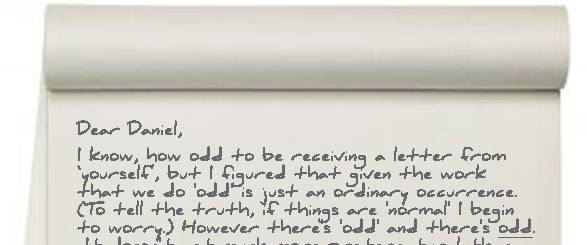 Dear Daniel,
I know, how odd to be receiving a letter from
'yourself', but I figured that given the work
that we do 'odd' is just an ordinary occurrence.
(To tell the truth, if things are 'normal' I begin
to worry.) However there's 'odd' and there's odd.